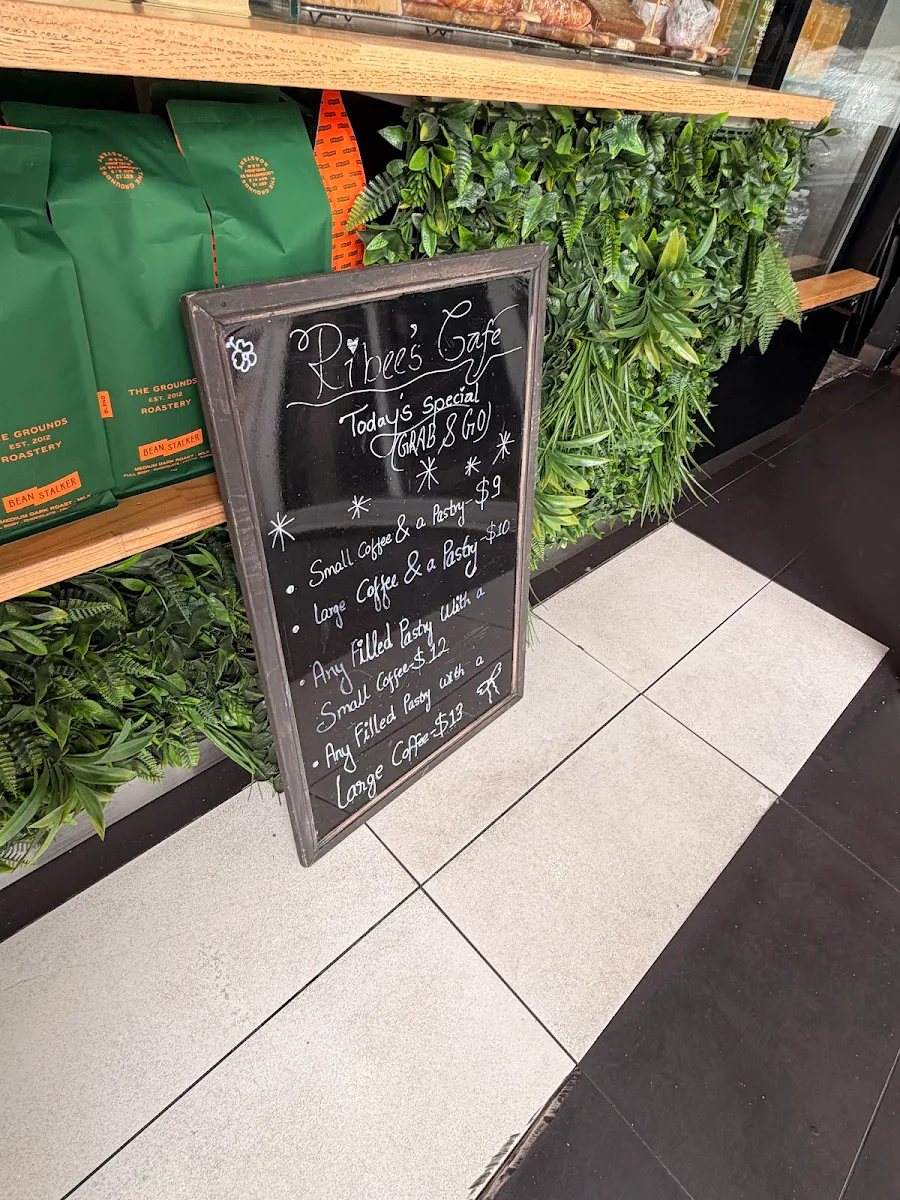 Ribee's Cafe
Today's Special
(GRAB & GO)
• Small Coffee & a Pastry-$9
• Large Coffee & a Pastry-$10
• Any Filled Pastry With a
Small Coffee-$12
• Any Filled Pastry with a
Large Coffee-$13
E GROUNDS
EST. 2012
ROASTERY
BEAN STALKER
MEDIUM DARK ROAST · MILK
BLEND
THE GROUNDS
EST. 2012
ROASTERY
BEAN STALKER
MEDIUM DARK ROAST · MILK